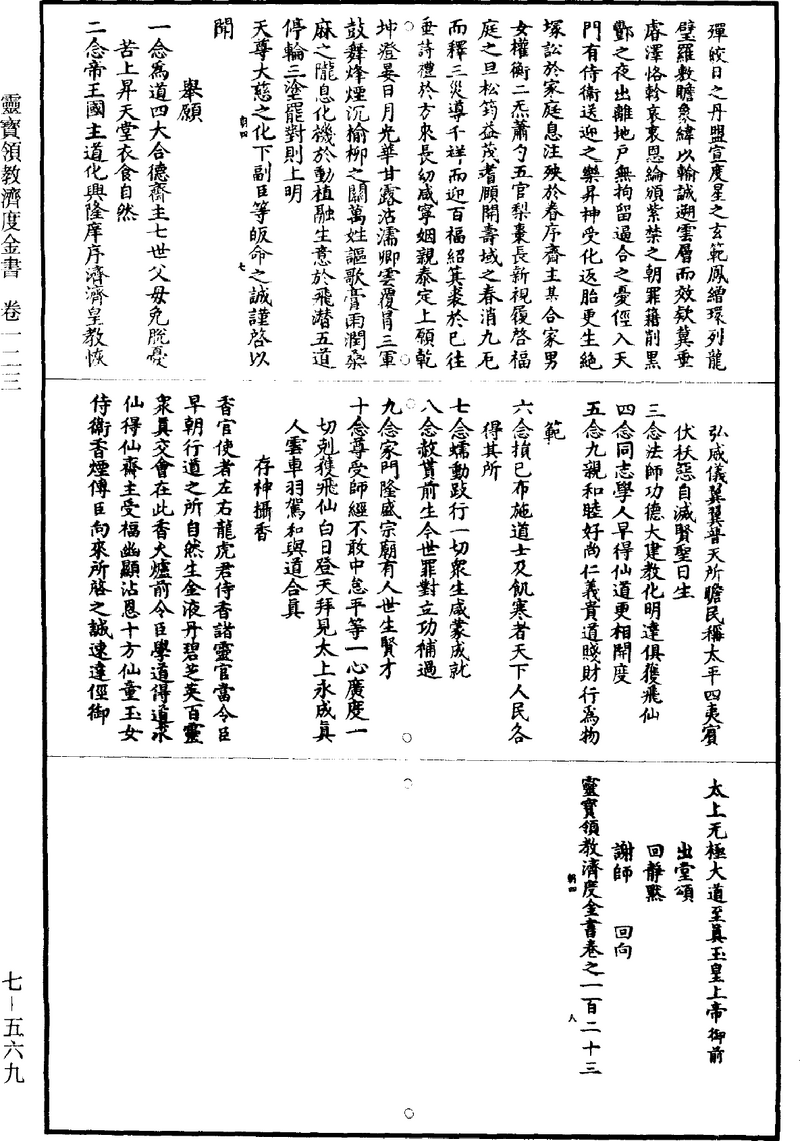 殫皎日之丹盟宣度星之玄範鳳繒環列龍
璧羅敷瞻象緯以輸誠遡雲層而效欵冀垂
睿澤恪軫哀衷恩綸頒紫禁之朝罪籍削黑
酆之夜出離地戶無拘留逼合之憂徑入天
門有侍衛送迎之樂昇神受化返胎更生絕
塚訟於家庭息注殃於春序齋主某合家男
女權衡二炁蕭勺五官梨棗長新視履啓福
庭之旦松筠益茂耆頤開壽域之春消九厄
而釋三災導千祥而迎百福紹箕裘於已往
垂詩禮於方來長幼咸寧姻親泰定上願乾
坤澄晏日月光華甘露沾濡卿雲覆冐三軍
鼓舞烽煙沉榆柳之關萬姓謳歌膏雨潤桑
麻之隴息化機於動植融生意於飛潛五道
停輪三塗罷對則上明
天尊大慈之化下副臣等皈命之誠謹啓以
朝四
七
聞
舉願
一念爲道四大合德齋主七世父母免脫憂
苦上昇天堂衣食自然
二念帝王國主道化興隆庠序濟濟皇教恢
弘威儀翼翼普天所瞻民稱太平四夷賓
伏祅惡自滅賢聖日生
三念法師功德大建教化明達俱獲飛仙
四念同志學人早得仙道更相開度
五念九親和睦好尚仁義貴道賤財行爲物
範
六念損己布施道士及飢寒者天下人民各
得其所
七念蠕動跂行一切衆生咸蒙成就
八念赦貰前生今世罪對立功補過
九念家門隆盛宗廟有人世生賢才
十念尊受師經不敢中怠平等一心廣度一
切剋獲飛仙白日登天拜見太上永成眞
人雲車羽駕和與道合眞
存神攝香
香官使者左右龍虎君侍香諸靈官當令臣
早朝行道之所自然生金液丹碧芝英百靈
衆眞交會在此香火爐前令臣學道得道求
仙得仙齋主受福幽顯沾恩十方仙童玉女
侍衛香煙傳臣向來所啓之誠速達徑御
太上无極大道至眞玉皇上帝御前
出堂頌
回靜黙
謝師 回向
靈寶領教濟度金書卷之一百二十三
朝四
八
靈寶領教濟度金書 卷一二三
七—五六九